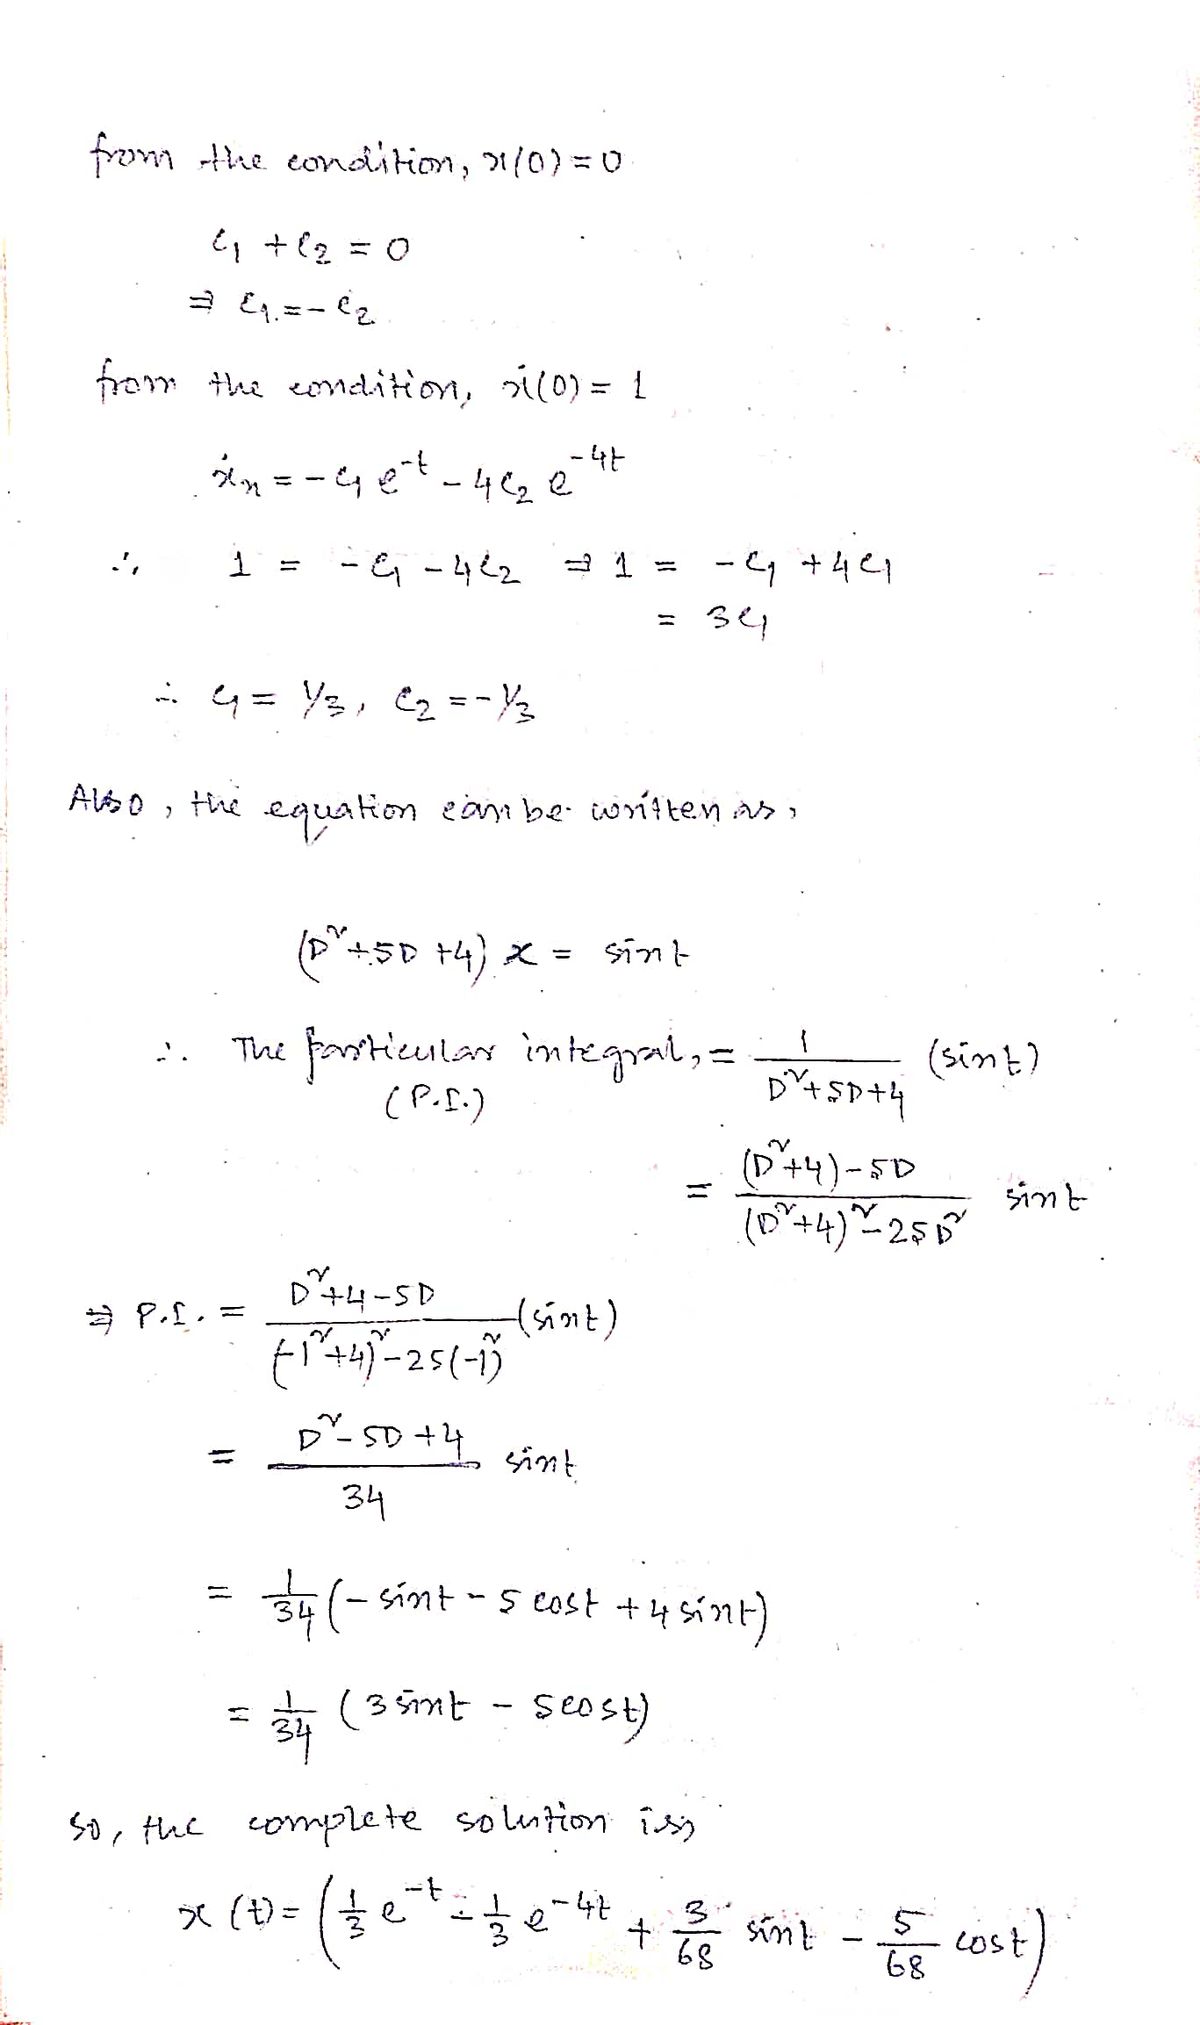 from the condition, x(0) = 0
c₁ + c₂ = 0
⇒ c₁ = - c₂
from the condition, ẋ(0) = 1
ẋₙ = - c₁ e^-t - 4c₂ e^-4t
∴ 1 = - c₁ - 4c₂ ⇒ 1 = - c₁ + 4c₁
= 3c₁
∴ c₁ = 1/3, c₂ = - 1/3
Also, the equation can be written as,
(D² + 5D + 4) x = sint
∴ The particular integral, = 1/(D² + 5D + 4) (sint)
(P.I.)
= ((D² + 4) - 5D)/((D² + 4)² - 25D²) sint
⇒ P.I. = (D² + 4 - 5D)/((-1² + 4)² - 25(-1)²) (sint)
= (D² - 5D + 4)/34 sint
= 1/34 (- sint - 5 cost + 4 sint)
= 1/34 (3 sint - 5 cost)
So, the complete solution is,
x(t) = (1/3 e^-t - 1/3 e^-4t + 3/68 sint - 5/68 cost)